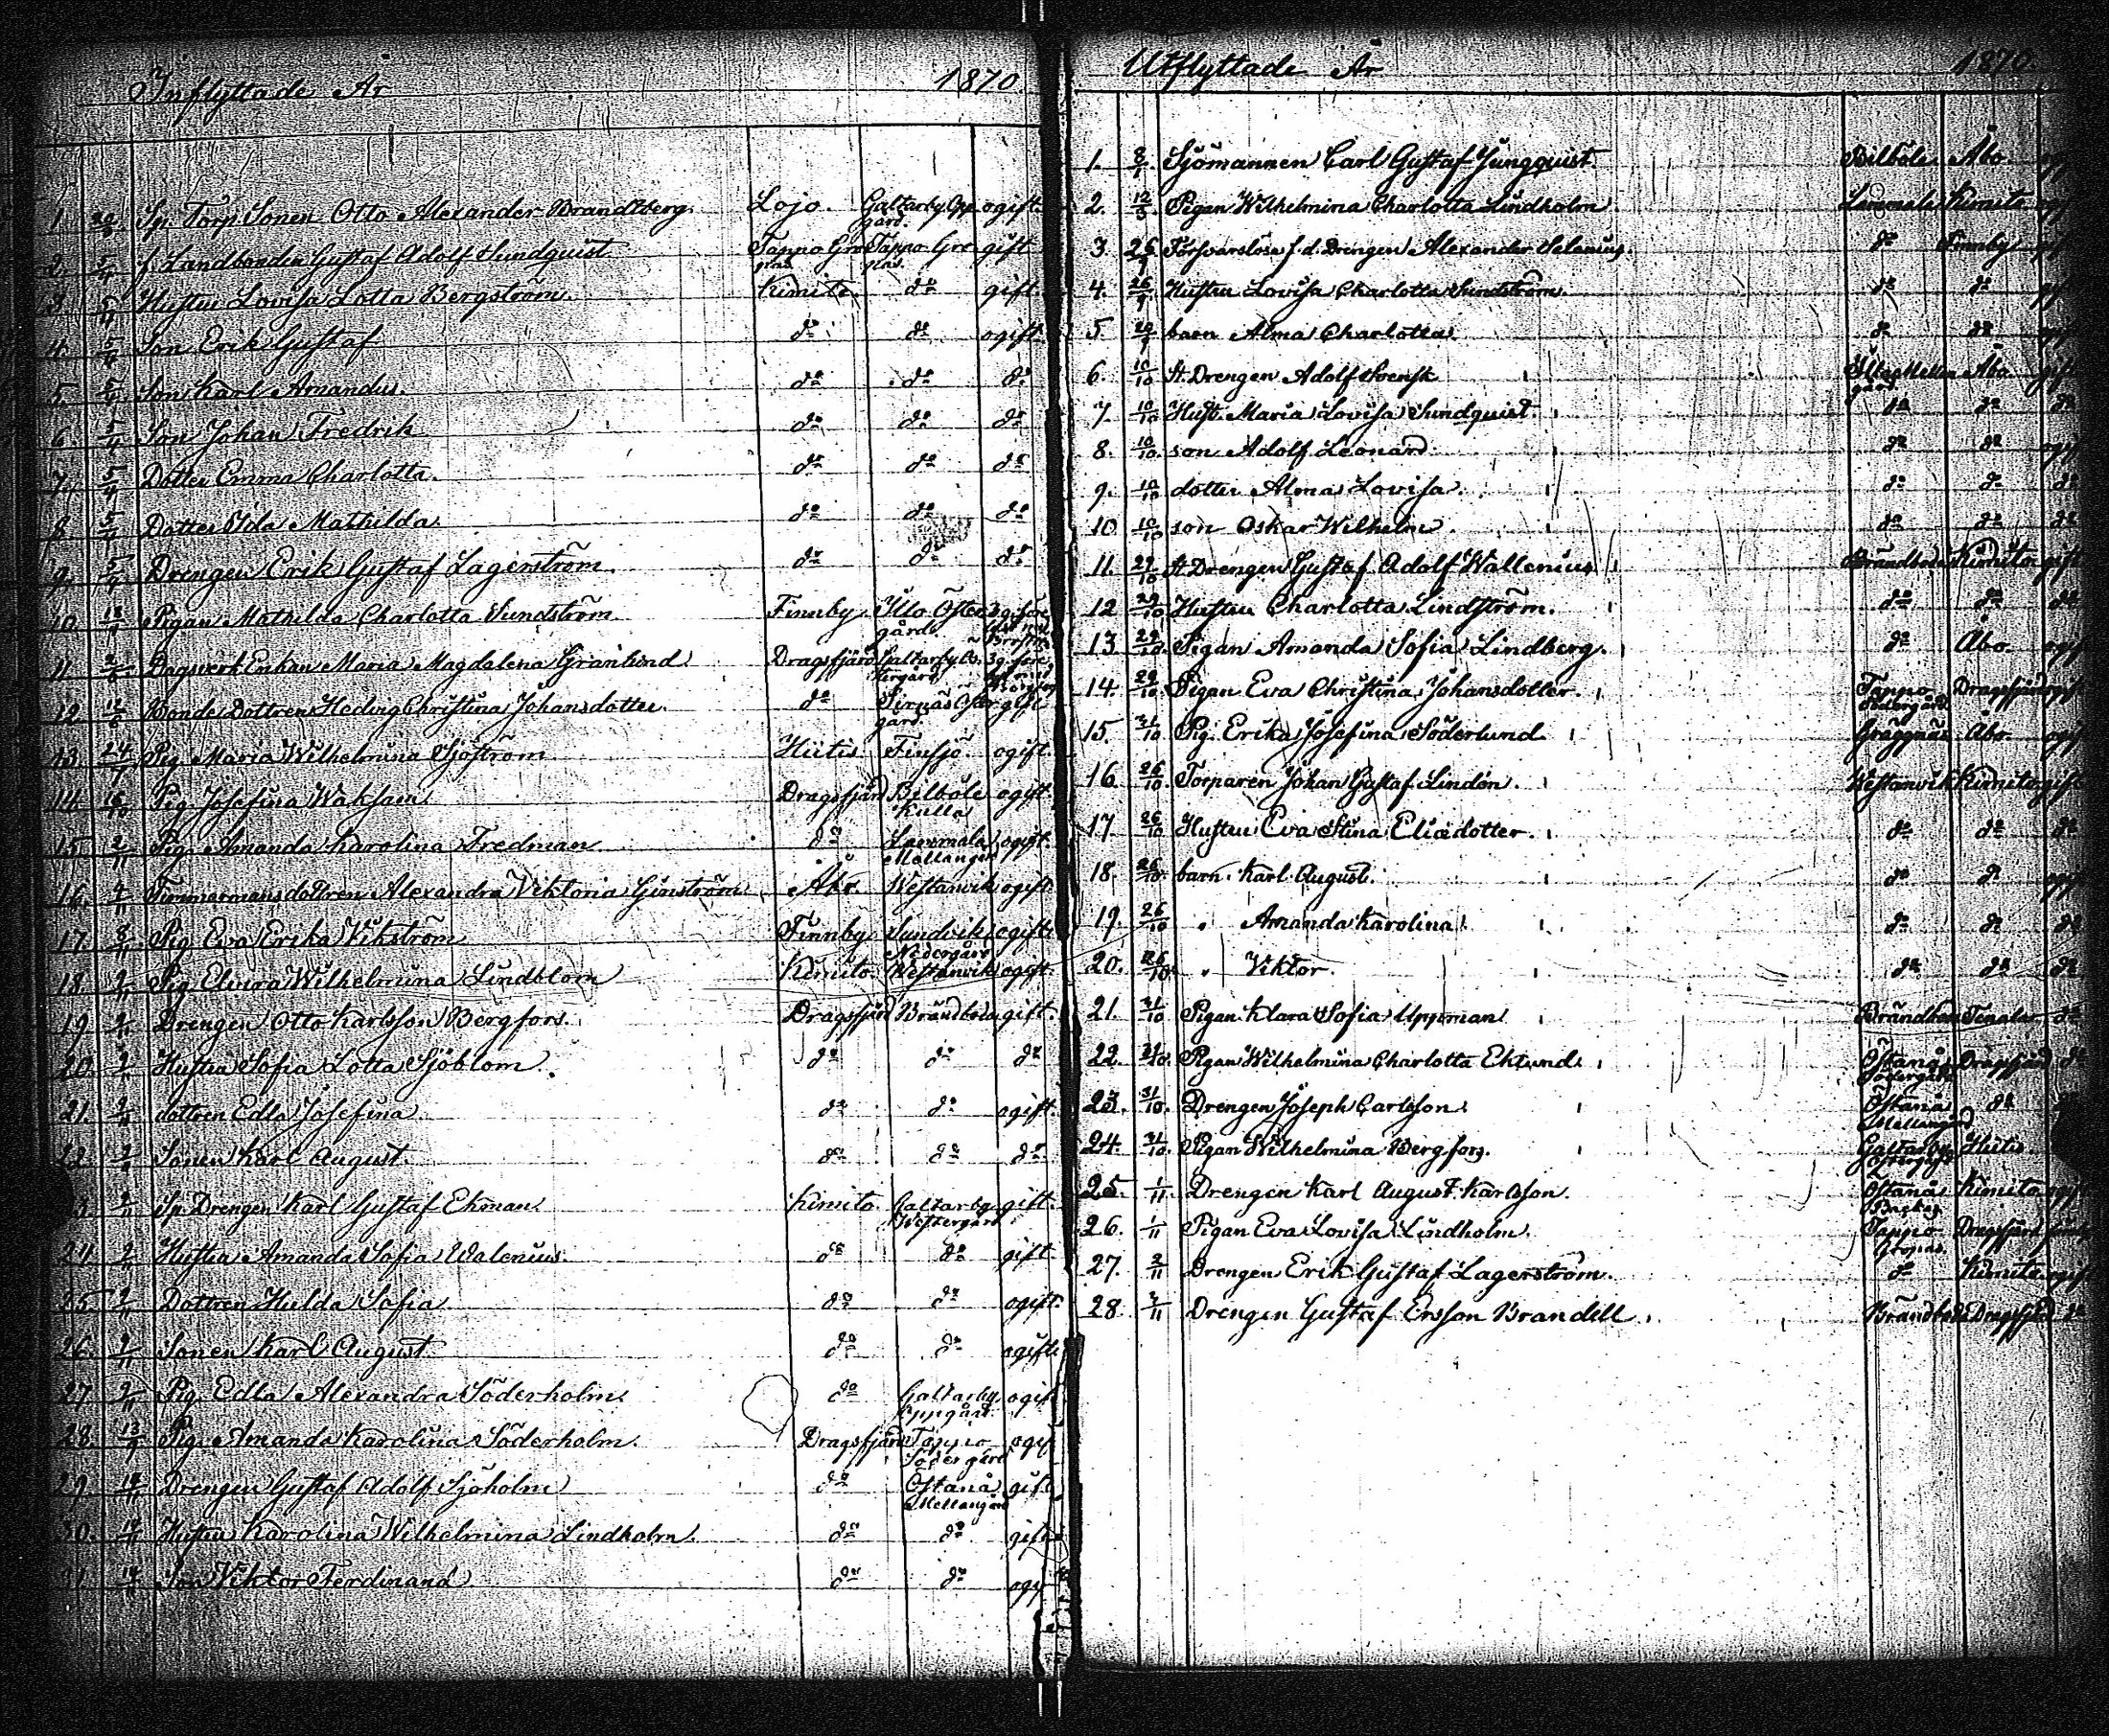 Inflyttade År 1870
1. Sp. Torp. Sonen Otto Alexander Brandtberg. Lojo. Galtarby Opp ogift.
gård.
2. 5/4 f. Landbonden Gustaf Adolf Sundquist Tappo Gre Tappo Gre gift
3 5/4 Hustru Lovisa Lotta Bergström. Kimito. do gift.
4. 5/4 Son Erik Gustaf do do ogift.
5. 5/4 Son Karl Amandus. do do do
6 5/4 Son Johan Fredrik do do do
7. 5/4 Dotter Emma Charlotta. do do do
8 5/4 Dotter Ida Mathilda do do do
9. 5/4 Drengen Erik Gustaf Lagerström. do do do
10. Pigan Mathilda Charlotta Sundström Finnby. Illo Öster
gård.
11 Dagsverk. Enkan Maria Magdalena Granlund Dragsfjärd Galtarby
12 Bonde Dottren Hedvig Christina Johansdotter. do gift
gård.
13 24/7 Pig. Maria Wilhelmina Sjöström Hiitis Finsjö. ogift.
14 Pig. Josefina Waksam Dragsfjärd Bilböle ogift.
Kulla
15 2/11 Pig. Amanda Karolina Fredman do Lammala ogift.
Mellangård
16. Timmermansdottren Alexandra Viktoria Åbo. Westanvik ogift.
17. 8/11 Pig. Eva Erika Vikström Finnby Sundvik ogift.
Nedergård
18. 2/11 Pig. Elvira Wilhelmina Lindblom Kimito. Westanvik ogift.
19 2/11 Drengen Otto Karlsson Bergfors. Dragsfjärd Brändboda gift.
20. 2/11 Hustru Sofia Lotta Sjöblom. do do do
21. 2/11 dottren Edla Josefina do do ogift.
22. 2/11 Sonen Karl August. do do do
3. 2/11 Sp. Drengen Karl Gustaf Ekman Kimito Galtarby gift.
Westergård
24. 2/11 Hustru Amanda Sofia Walenius. do do gift
25. 2/11 Dottren Hulda Sofia do do ogift.
26. 2/11 Sonen Karl August do do ogift.
27 2/11 Pig. Edla Alexandra Söderholm. do Galtarby ogift
Oppgård.
28. 13/9 Pig. Amanda Karolina Söderholm. Dragsfjärd Tappo ogif
Södergård
29. 14/11 Drengen Gustaf Adolf Sjöholm do Östanå gift
Mellangård
30. 14/11 Hustru Karolina Wilhelmina Lindholm. do do gift
31. 14/11 Son Viktor Ferdinand do do ogif
Utflyttade År 1870.
1. Sjömannen Carl Gustaf Ljungquist. Bilböle Åbo.
2. Pigan Wilhelmina Charlotta Lindholm Lammala Kimito
3 26/9 Försvarslöse f. d. Drengen Alexander Selenius. do Finnby
4. 26/9 Hustru Lovisa Charlotta Sundström. do do
5 barn Alma Charlotta. do do
6. 10/10 St. Drengen Adolf Svensk Åbo gift
gård
7. 10/10 Hust. Maria Lovisa Sundquist. do do do
8. 10/10 son Adolf Leonard do do
9. 10/10 dotter Alma Lovisa. do do do
10 10/10 son Oskar Wilhelm. do do do
11. 29/10 St. Drengen Gustaf Adolf Wallenius Brändboda Kimito gift
12 29/10 Hustru Charlotta Lindström. do do do
13 29/10 Pigan Amanda Sofia Lindberg. do Åbo.
14. 29/10 Pigan Eva Christina Johansdotter. Tappo Dragsfjärd
Södergård
15. 31/10 Pig. Erika Josefina Söderlund Gräggnäs Åbo.
16. 26/10 Torparen Johan Gustaf Lindén. Westanvik Kimito gift
17 26/10 Hustru Eva Stina Eliædotter. do do do
18. 26/10 barn Karl August. do do
19. 26/10 " Amanda Karolina do do do
20. 26/10 " Viktor. do do do
21. 31/10 Pigan Klara Sofia Uppman Tenala do
22. 31/10 Pigan Wilhelmina Charlotta Eklund Östanå Dragsfjärd do
Södergård
23. 31/10 Drengen Joseph Carlsson Östanå do
Mellangård
24. 31/10 Pigan Wilhelmina Bergfors. Galtarby Hiitis
25. 1/11 Drengen Karl August Karlsson. Östanå Kimito
26. 1/11 Pigan Eva Lovisa Lindholm. Tappo Dragsfjärd
27. 2/11 Drengen Erik Gustaf Lagerström. do Kimito ogift
28. 2/11 Drengen Gustaf Ersson Brandell Brändboda Dragsfjärd do